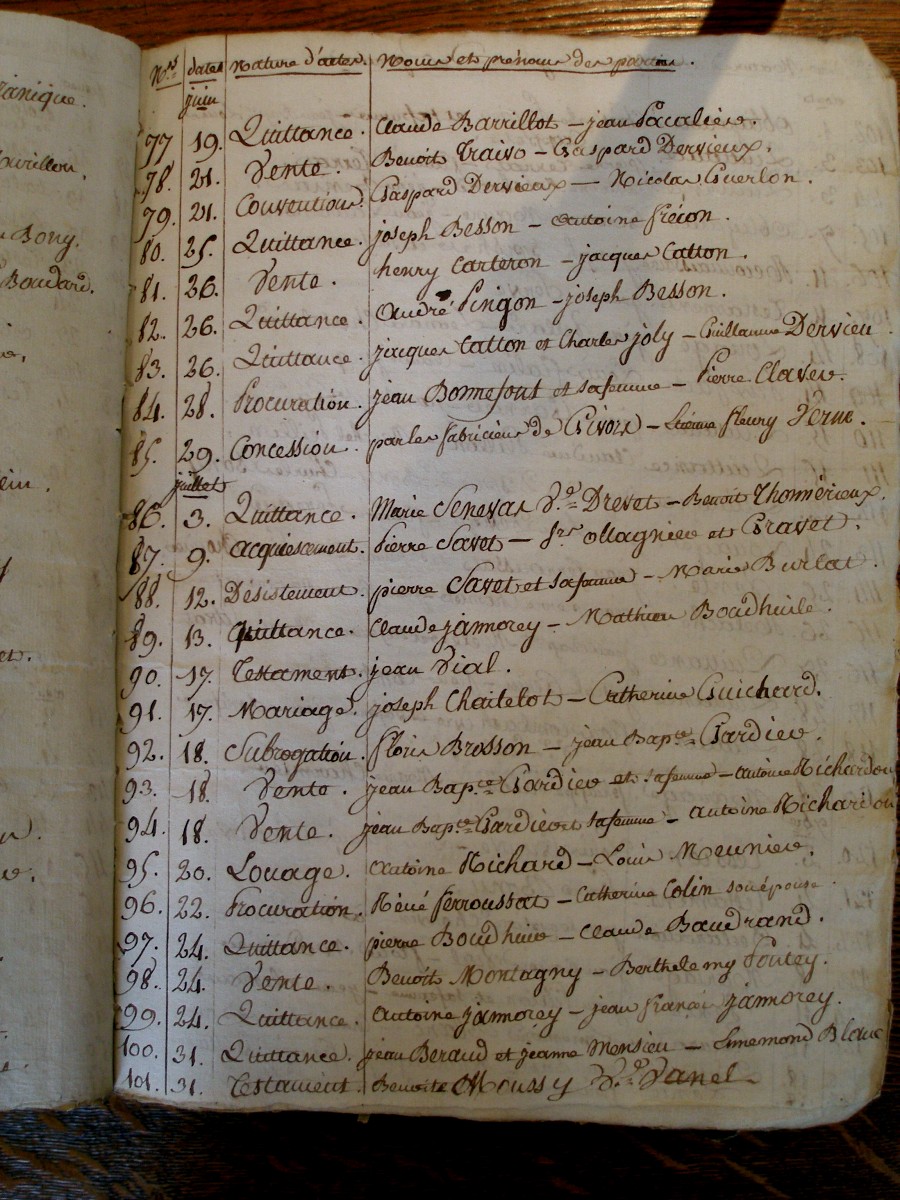 anique.
Bony.
Boudard.
N.os dates Nature d'actes. Noms et prénoms des parties.
juin
77 19. Quittance. Claude Barrillot - jean Pacalier.
78. 21. Vente. Benoit Traivo - Gaspard Dervieux.
79. 21. Convention. Gaspard Dervieux - Nicolas Guerlon.
80. 25. Quittance. joseph Besson - Antoine frécon.
81. 26. Vente. henry Carteron - jacques Catton.
82. 26. Quittance. André Pingon - joseph Besson.
83. 26. Quittance. jacques Catton et Charles joly - Guillaume Dervieu
84. 28. Procuration. jean Bonnefont et sa femme - Pierre Clavev.
85. 29. Concession. par les fabriciens de Givors - Etienne fleury
juillet
86. 3. Quittance. Marie Senevas V.e Drevet - Benoit Thomérieux.
87. 9. acquiescement. Pierre Savet - f.res ollagnier et Gravet.
88. 12. Désistement. pierre Savet et sa femme - Marie Burlat.
89. 13. Quittance. Claude jamorey - Mathieu Boudhuile.
90. 17. Testament. jean Vial.
91. 17. Mariage. joseph Chatelot - Catherine Guichard.
92. 18. Subrogation. floris Brosson - jean Bap.te Gardiev.
93. 18. Vente. jean Bap.te Gardiev et sa femme - antoine Richardon
94. 18. Vente. jean Bap.te Gardiev et sa femme - antoine Richardon
95. 20. Louage. Antoine Richard - Louis Meunier.
96. 22. Procuration. Réné ferroussat - Catherine Colin son épouse.
97. 24. Quittance. pierre Boudhuie - Claude Baudrand.
98. 24. Vente. Benoit Montagny - Berthelemy Poutey.
99. 24. Quittance. Antoine jamorey - jean françois jamorey.
100. 31. Quittance. jean Beraud et jeanne Mensieu - Simemond Blanc
101. 31. Testament. Benoite Moussy V.e Vanel